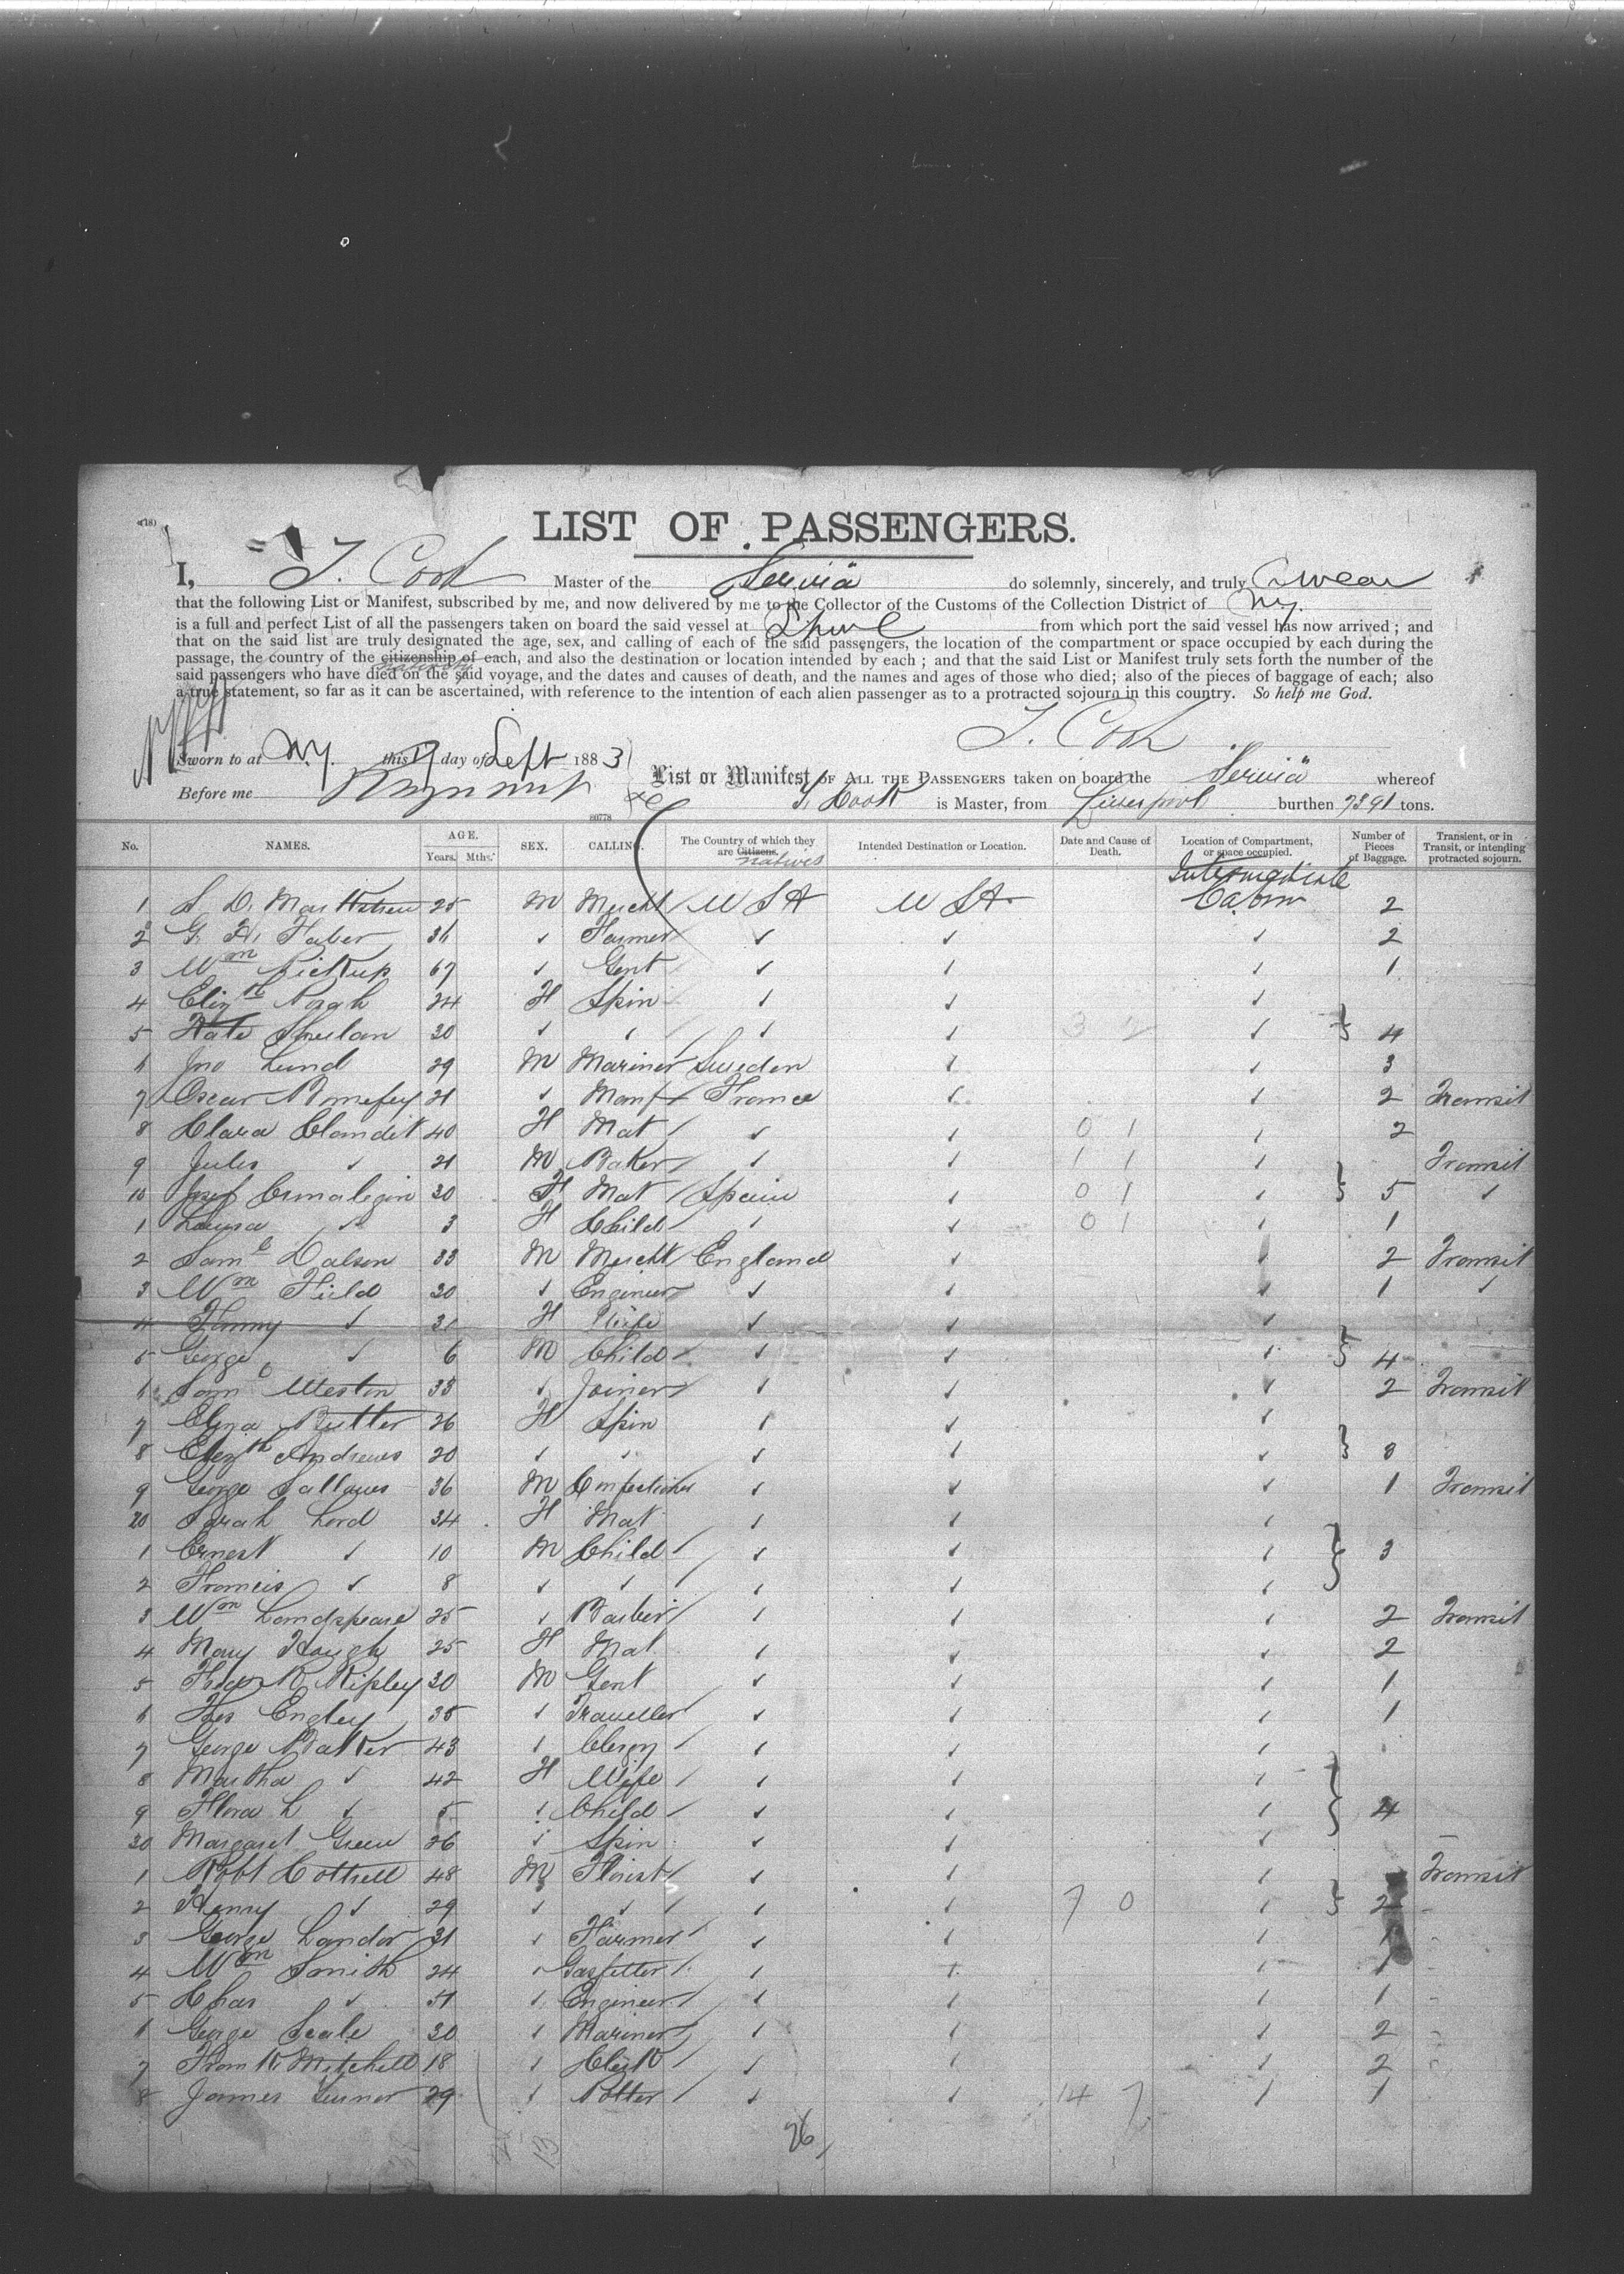 (18)
LIST OF PASSENGERS.
I, T. Cook Master of the "Servia" do solemnly, sincerely, and truly Swear
that the following List or Manifest, subscribed by me, and now delivered by me to the Collector of the Customs of the Collection District of N.Y.
is a full and perfect List of all the passengers taken on board the said vessel at L'pool from which port the said vessel has now arrived; and
that on the said list are truly designated the age, sex, and calling of each of the said passengers, the location of the compartment or space occupied by each during the
passage, the country of the citizenship of each, and also the destination or location intended by each; and that the said List or Manifest truly sets forth the number of the
said passengers who have died on the said voyage, and the dates and causes of death, and the names and ages of those who died; also of the pieces of baggage of each; also
a true statement, so far as it can be ascertained, with reference to the intention of each alien passenger as to a protracted sojourn in this country. So help me God.
T. Cook
Sworn to at N.Y. this 17 day of Sept 1883
Before me
List or Manifest OF ALL THE PASSENGERS taken on board the "Servia" whereof
T. Cook is Master, from Liverpool burthen 7391 tons.
80778
No. NAMES. AGE. Years. Mths. SEX. CALLING. The Country of which they are Citizens. natives Intended Destination or Location. Date and Cause of Death. Location of Compartment, or space occupied. Number of Pieces of Baggage. Transient, or in Transit, or intending protracted sojourn.
1 S. D. 25 M Mercht USA USA Intermediate Cabin 2
2 G. H. Faber 36 ✓ Farmer ✓ ✓ ✓ 2
3 Wm Pickup 67 ✓ Gent ✓ ✓ ✓ 1
4 Elizth 24 F Spin ✓ ✓ ✓
5 Kate 20 ✓ ✓ ✓ ✓ 3 2 ✓ } 4
6 Jno Lund 29 M Mariner Sweden ✓ ✓ 3
7 Oscar 21 ✓ Manf France ✓ ✓ 2 Transit
8 Clara Claudet 40 F Mat ✓ ✓ 0 1 ✓ 2
9 Jules ✓ 21 M Baker ✓ ✓ 1 1 ✓ Transit
10 Josef 30 F Mat Spain ✓ 0 1 ✓ } 5 ✓
1 Louisa ✓ 3 F Child ✓ ✓ 0 1 ✓ 1
2 Saml Dalson 33 M Mercht England ✓ ✓ 2 Transit
3 Wm Field 30 ✓ Engineer ✓ ✓ ✓ 1 ✓
4 Fanny ✓ 31 F Wife ✓ ✓ ✓
5 George ✓ 6 M Child ✓ ✓ ✓ } 4
6 Saml Weston 33 ✓ Joiner ✓ ✓ ✓ 2 Transit
7 Eliza Butler 26 F Spin ✓ ✓ ✓
8 Elizth Andrews 20 ✓ ✓ ✓ ✓ ✓ } 3
9 George Sallows 36 M Confectioner ✓ ✓ ✓ 1 Transit
20 Sarah Lord 34 F Mat ✓ ✓ ✓
1 Ernest ✓ 10 M Child ✓ ✓ ✓ } 3
2 Francis ✓ 8 ✓ ✓ ✓ ✓ ✓
3 Wm 25 ✓ Barber ✓ ✓ ✓ 2 Transit
4 Mary Hough 25 F Mat ✓ ✓ ✓ 2
5 R Ripley 30 M Gent ✓ ✓ ✓ 1
6 Engley 35 ✓ Traveller ✓ ✓ ✓ 1
7 George Barker 43 ✓ Clergy ✓ ✓ ✓
8 Martha ✓ 42 F Wife ✓ ✓ ✓
9 Flora L ✓ 5 ✓ Child ✓ ✓ ✓ } 4
30 Margaret Green 26 ✓ Spin ✓ ✓ ✓
1 Robt Cottrell 48 M Florist ✓ ✓ ✓ Transit
2 Henry ✓ 29 ✓ ✓ ✓ ✓ 7 0 ✓ } 2
3 George Landor 31 ✓ Farmer ✓ ✓ ✓ 1
4 Wm Smith 24 ✓ Gasfitter ✓ ✓ ✓ 1
5 Chas ✓ 51 ✓ Engineer ✓ ✓ ✓ 1
6 George Seale 30 ✓ Mariner ✓ ✓ ✓ 2
7 Frank Mitchell 18 ✓ Clerk ✓ ✓ ✓ 2
8 James 29 ✓ Potter ✓ ✓ 14 7 ✓ 1
26